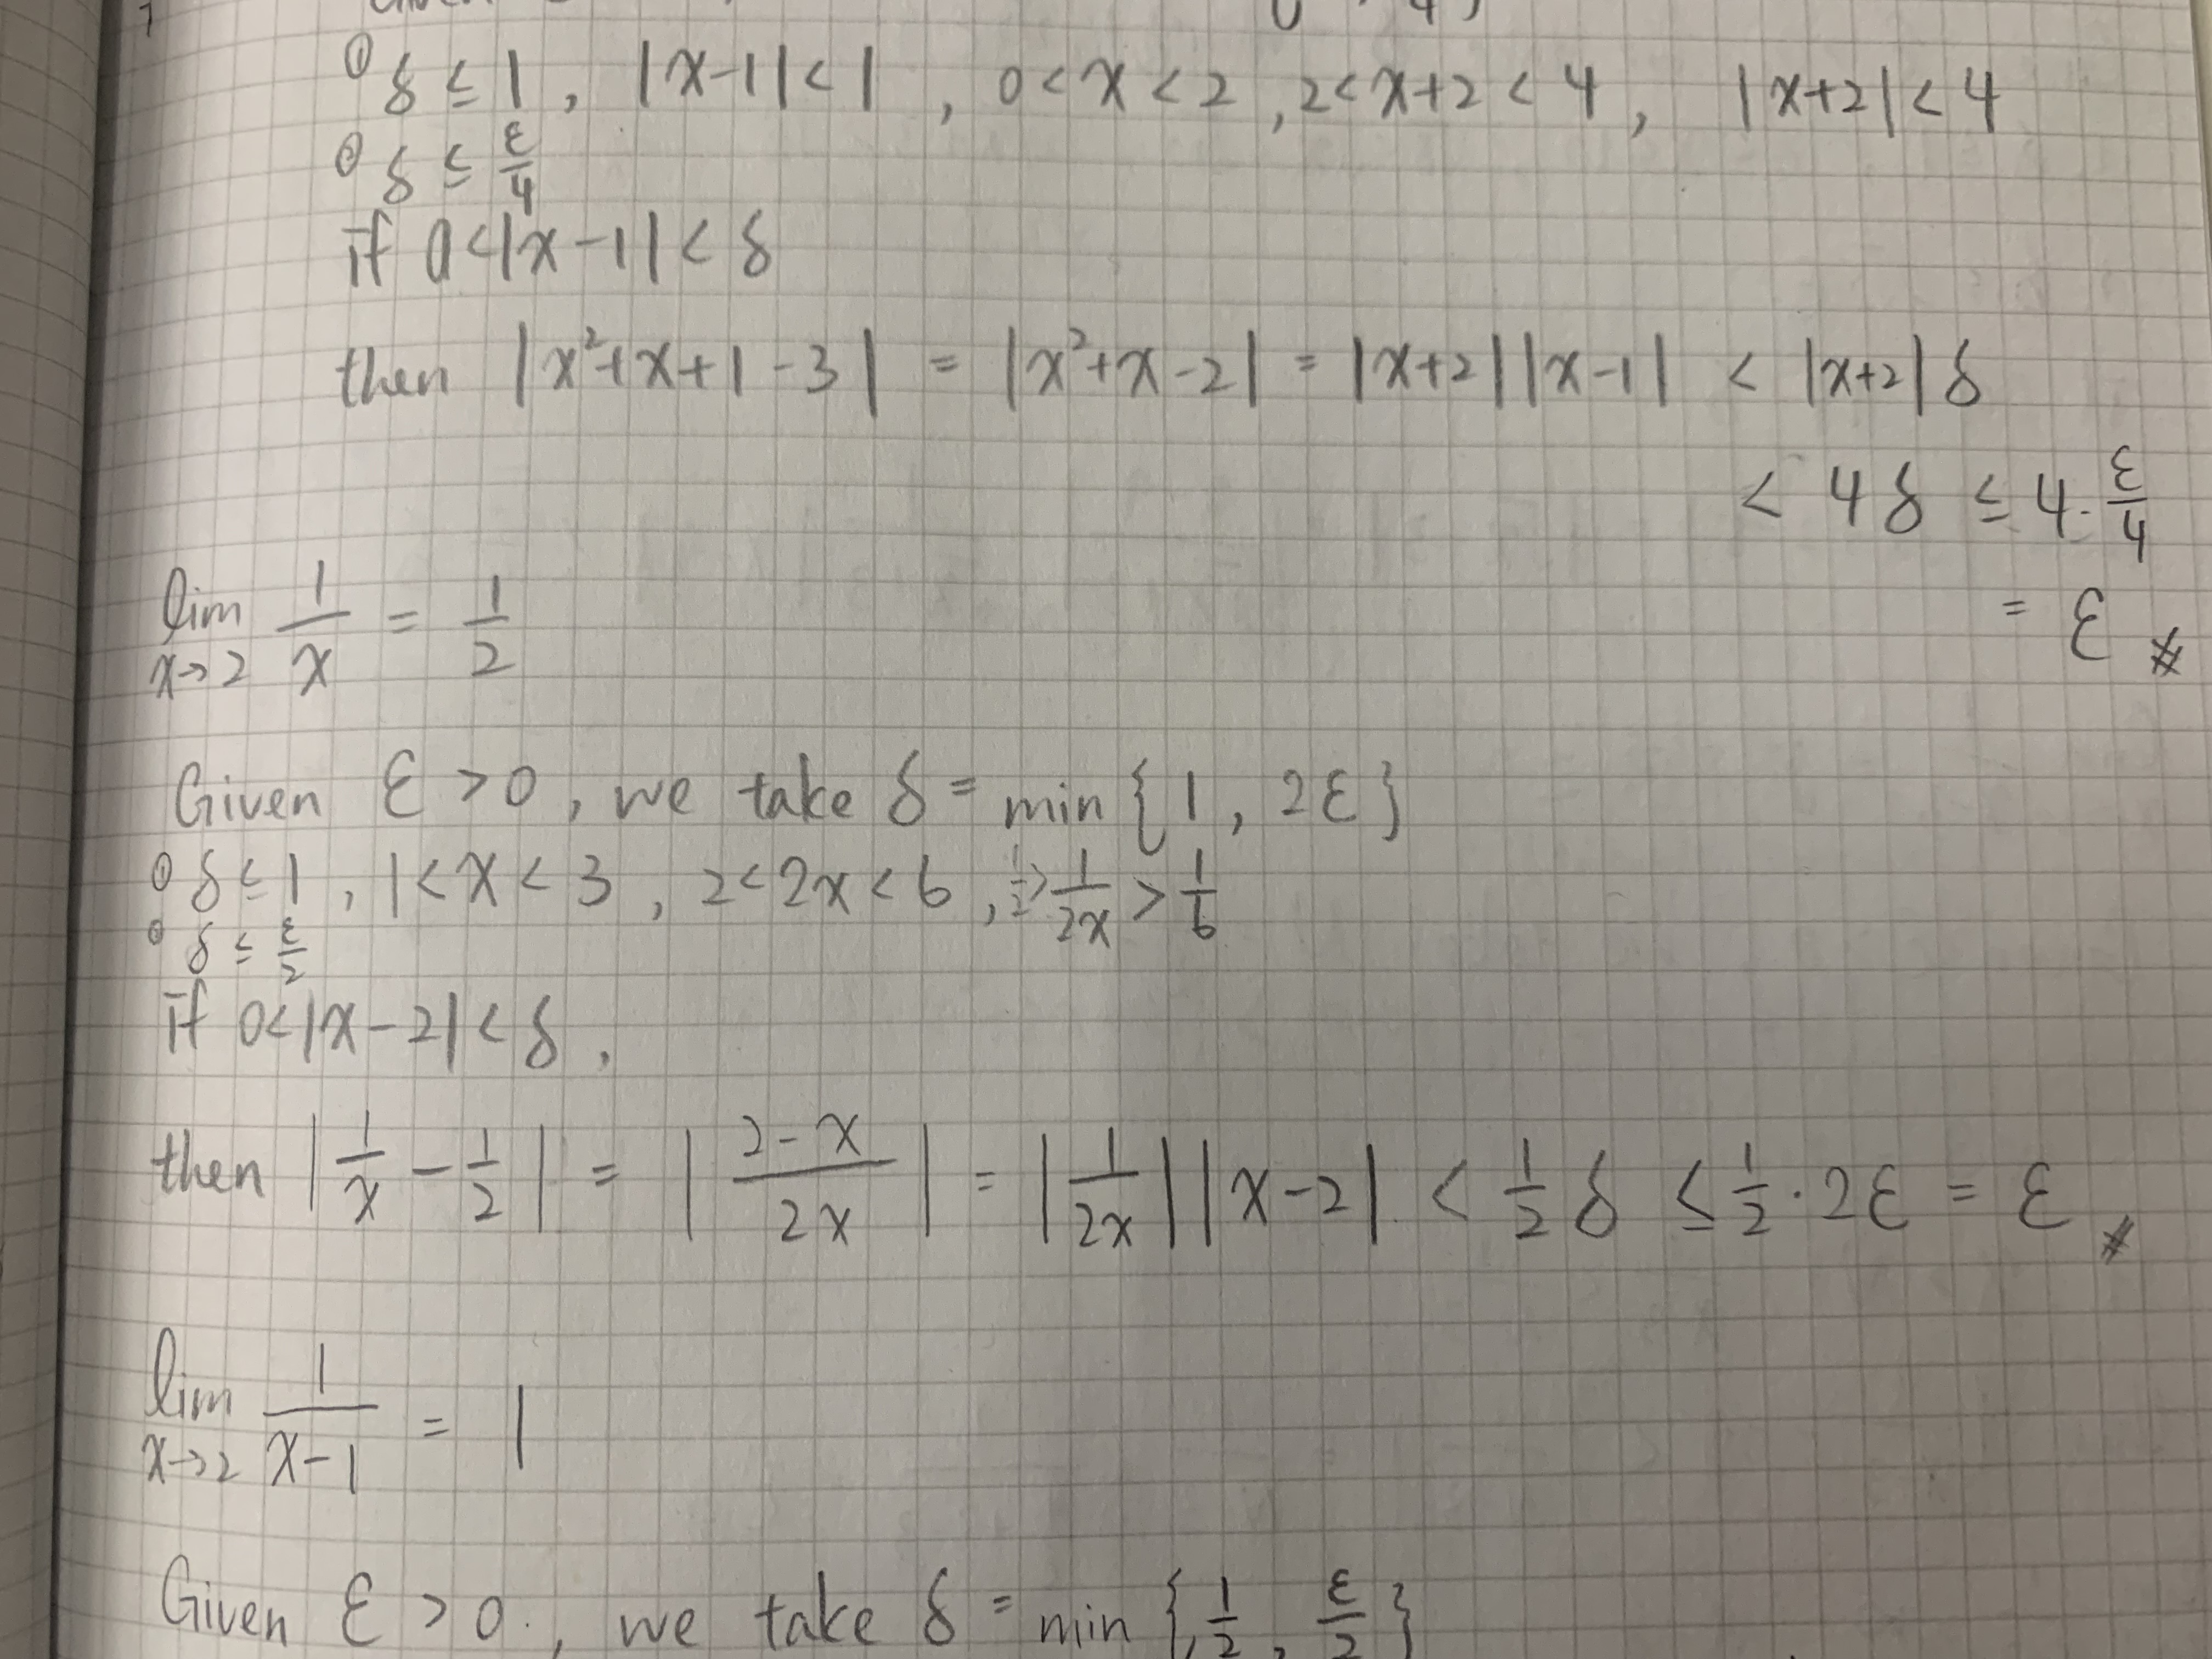 ① δ ≤ 1, |x-1| < 1, 0 < x < 2, 2 < x+2 < 4, |x+2| < 4
② δ ≤ ε/4
If 0 < |x-1| < δ
then |x²+x+1-3| = |x²+x-2| = |x+2||x-1| < |x+2|δ
< 4δ ≤ 4·ε/4
= ε #
lim x→2 1/x = 1/2
Given ε > 0, we take δ = min {1, 2ε}
① δ ≤ 1, 1 < x < 3, 2 < 2x < 6, 1/2 > 1/2x > 1/6
② δ ≤ ε/2
If 0 < |x-2| < δ,
then |1/x - 1/2| = |2-x/2x| = |1/2x||x-2| < 1/2 δ ≤ 1/2·2ε = ε #
lim x→2 1/x-1 = 1
Given ε > 0, we take δ = min {1/2, ε/2}